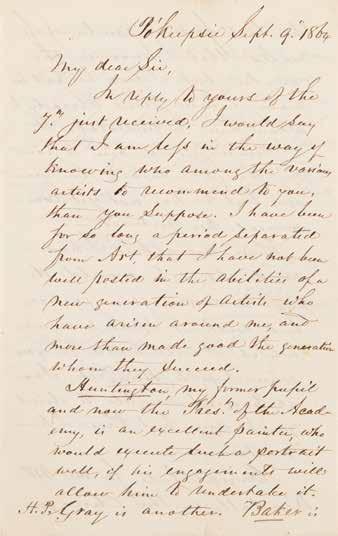 Po'keepsie Sept. 9. 1864
My dear Sir,
In reply to yours of the
7th just received, I would say
that I am less in the way of
knowing who among the various
artists to recommend to you,
than you suppose. I have been
for so long a period separated
from Art that I have not been
well posted in the abilities of a
new generation of artists who
have arisen around me, and
more than made good the generation
whom they succeed.
Huntington, my former pupil
and now the Prest. of the Acad-
emy, is an excellent painter, who
would execute such a portrait
well, if his engagements will
allow him to undertake it.
H. P. Gray is another. Baker is